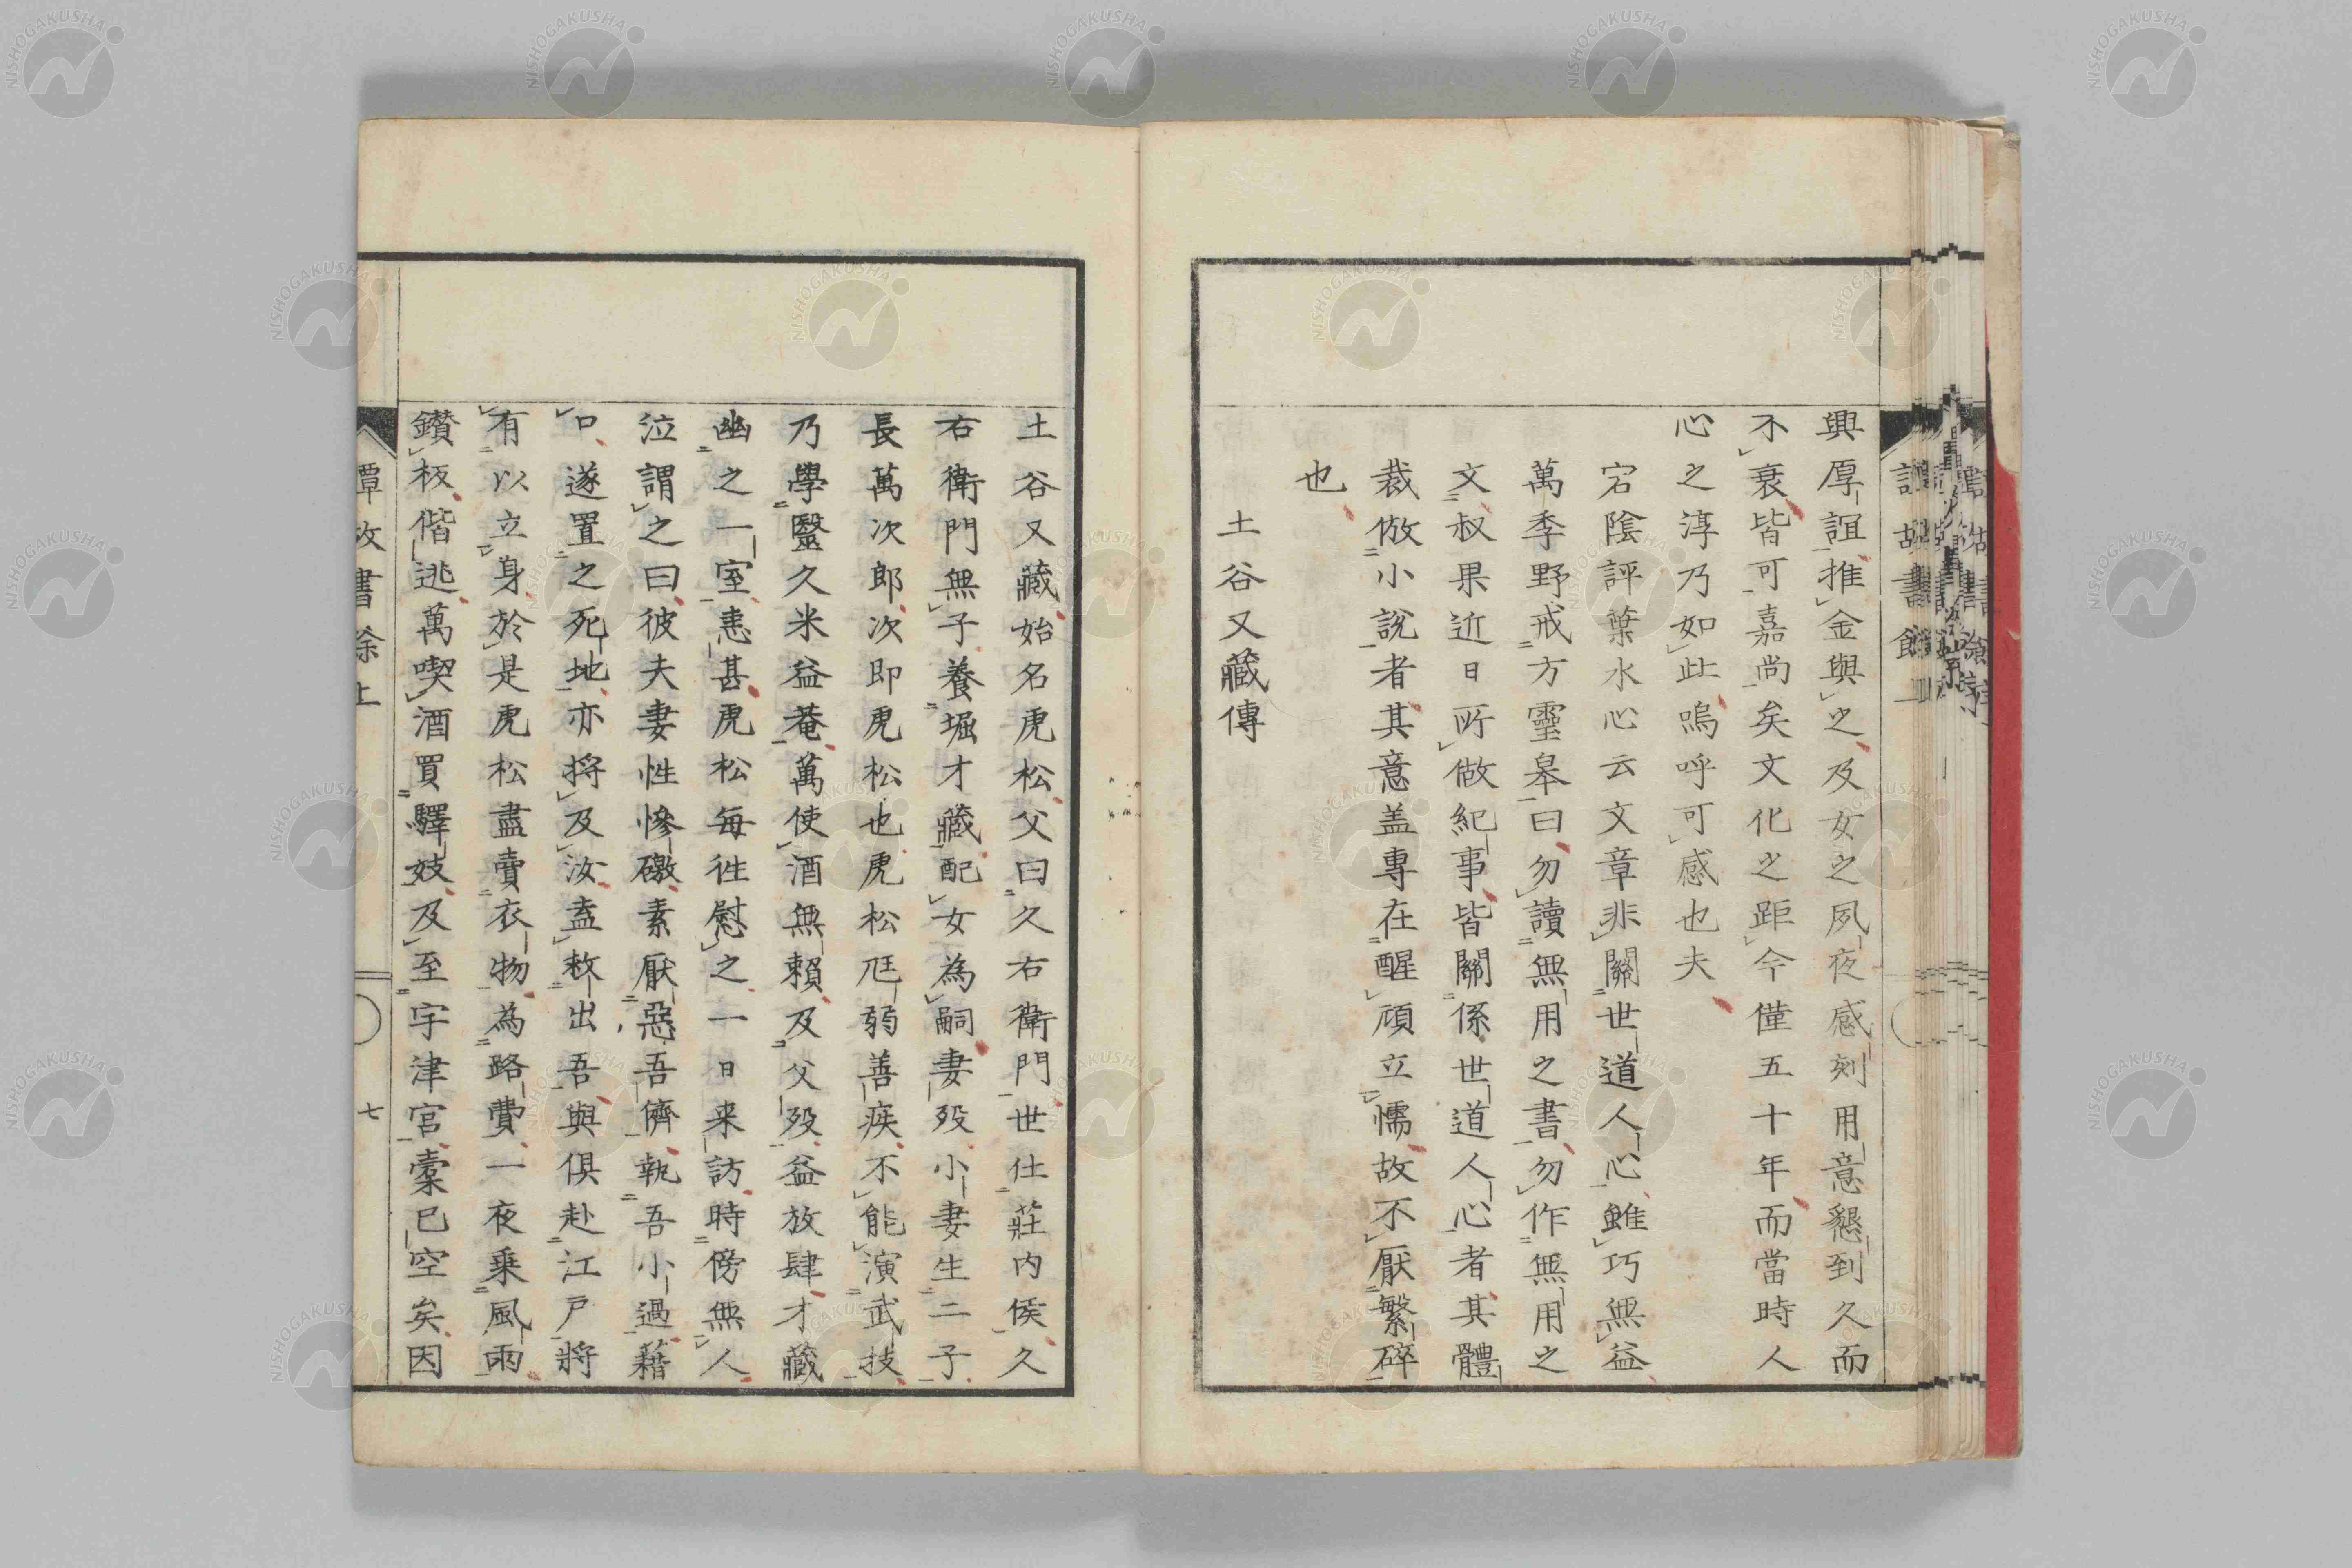 興厚誼推金與之及女之夙夜感刻用意懇到久而
不衰皆可嘉尚矣文化之距今僅五十年而當時人
心之淳乃如此嗚呼可感也夫
宕陰評葉水心云文章非關世道人心雖巧無益
萬季野戒方靈皋曰勿讀無用之書勿作無用之
文叔果近日所做紀事皆關係世道人心者其體
裁倣小說者其意盖專在醒頑立懦故不厭繁碎
也
土谷又藏傳
土谷又藏始名虎松父曰久右衛門世仕莊内侯久
右衛門無子養堀才藏配女為嗣妻歿小妻生二子
長萬次郎次即虎松也虎松尫弱善疾不能演武技
乃學醫久米益菴萬使酒無賴及父歿益放肆才藏
幽之一室恚甚虎松每徃慰之一日来訪時傍無人
泣謂之曰彼夫妻性慘礉素厭惡吾儕執吾小過藉
口遂置之死地亦将及汝盍敕出吾與俱赴江戸將
有以立身於是虎松盡賣衣物為路費一夜乗風雨
鑽板偕逃萬喫酒買驛妓及至宇津宮槖已空矣因
譚故書餘上
七
NISHOGAKUSHA